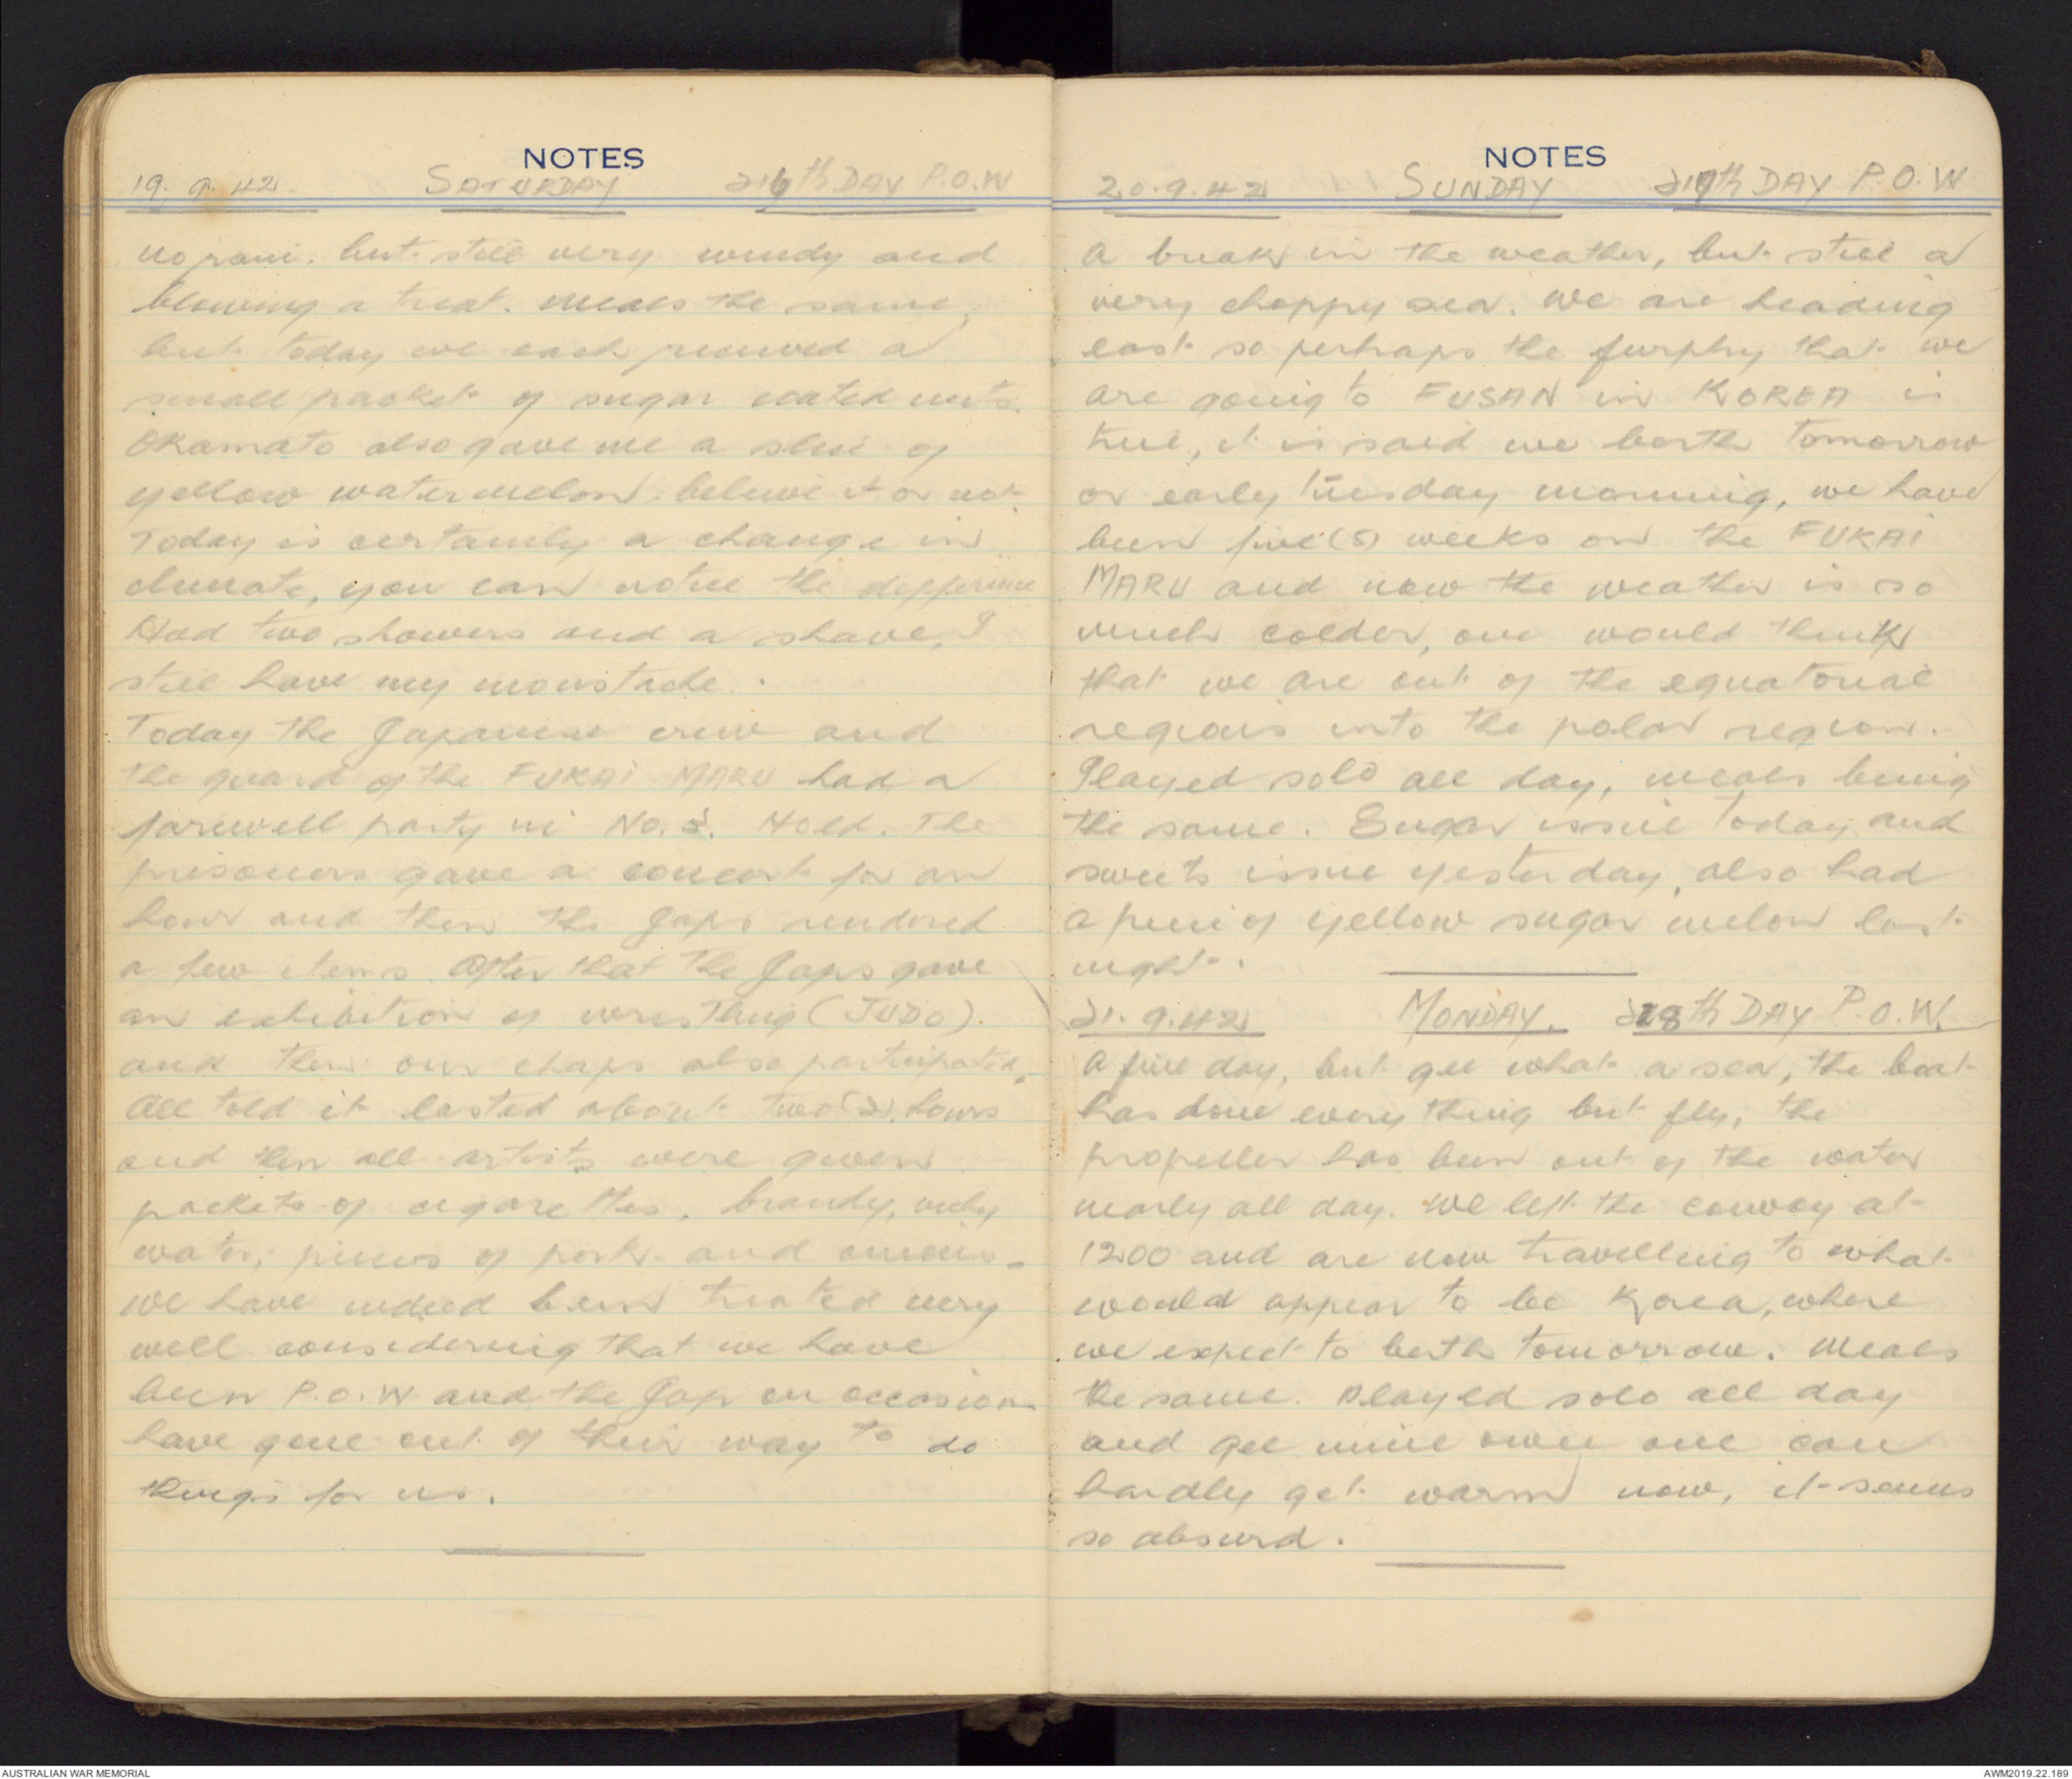 NOTES
19. 9. 42. SATURDAY 216th DAY P.O.W
no rain. but still very windy and
blowing a treat. Meals the same,
but today we each received a
small packet of sugar coated nuts.
Okamato also gave me a slice of
yellow watermelon. believe it or not.
Today is certainly a change in
climate, you can notice the difference
Had two showers and a shave, I
still have my moustache.
Today the Japanese crew and
the guard of the FUKAI MARU had a
farewell party in No. Hold. The
prisoners gave a concert for an
hour and then the Japs rendered
a few items. After that the Japs gave
an exhibition of wrestling (JUDO).
and then our chaps also participated.
All told it lasted about two(2). hours
and then all artists were given
packets of cigarettes. brandy,
water, pieces of pork. and onions.
we have indeed been treated very
well considering that we have
been P.O.W and the Jap on occasions
have gone out of their way to do
things for us.
NOTES
20.9.42 SUNDAY 217th DAY P.O.W
A break in the weather, but still a
very choppy sea. We are heading
east so perhaps the furphy that we
are going to FUSAN in KOREA is
true, it is said we berth tomorrow
or early Tuesday morning, we have
been five(5) weeks on the FUKAI
MARU and now the weather is so
much colder, one would think
that we are out of the equatorial
regions into the polar region.
Played solo all day, meals being
the same. Sugar issue today and
sweets issue yesterday, also had
a piece of yellow sugar melon last
night.
21.9.42 MONDAY. 218th DAY P.O.W.
A fine day, but gee what a sea, the boat
has done every thing but fly, the
propeller has been out of the water
nearly all day. We left the convoy at
1200 and are now travelling to what
would appear to be Korea, where
we expect to berth tomorrow. Meals
the same. Played solo all day
and gee one can
hardly get warm now, it seems
so absurd.
AUSTRALIAN WAR MEMORIAL
AWM2019.22.189